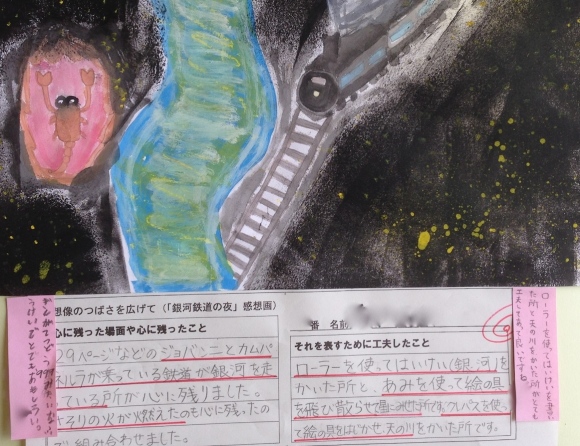 想像のつばさを広げて（「銀河鉄道の夜」感想画）
心に残った場面や心に残ったこと
29ページなどのジョバンニとカムパ
ネルラが乗っている鉄道が銀河を走
っている所が心に残りました。
さそりの火が燃えたのも心に残ったの
で組み合わせました。
番 名前
それを表すために工夫したこと
ローラーを使ってはいけい(銀河)を
かいた所と、あみを使って絵の具
を飛び散らせて星にみせた所です。クレパスを使っ
て絵の具をはじかせ、天の川をかいた所です。
ローラーを使ってはいけいを書い
た所と天の川をかいた所がとても
工夫されて良いですね。